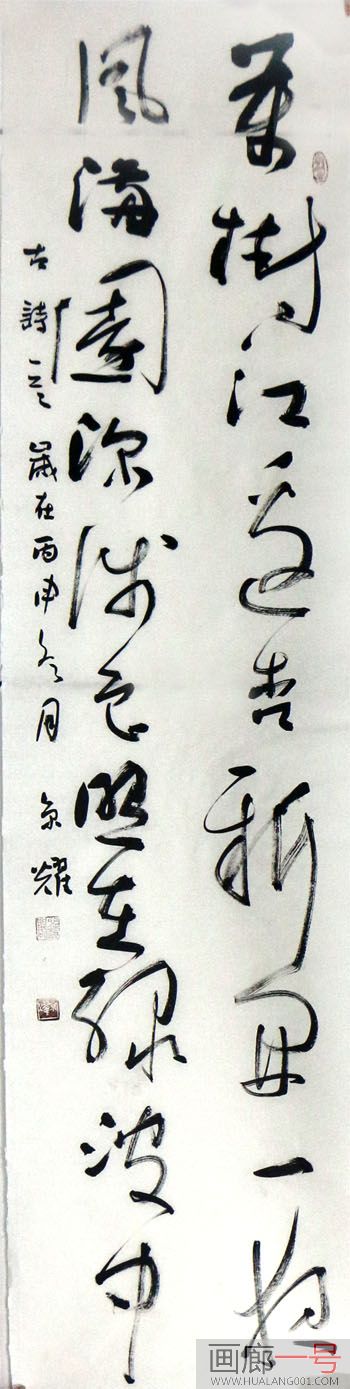 萬樹江邊杏新開一夜
風滿園深淺色照在綠波中
古詩一首 歲在丙申冬月 京耀
画廊一号
WWW.HUALANG001.COM